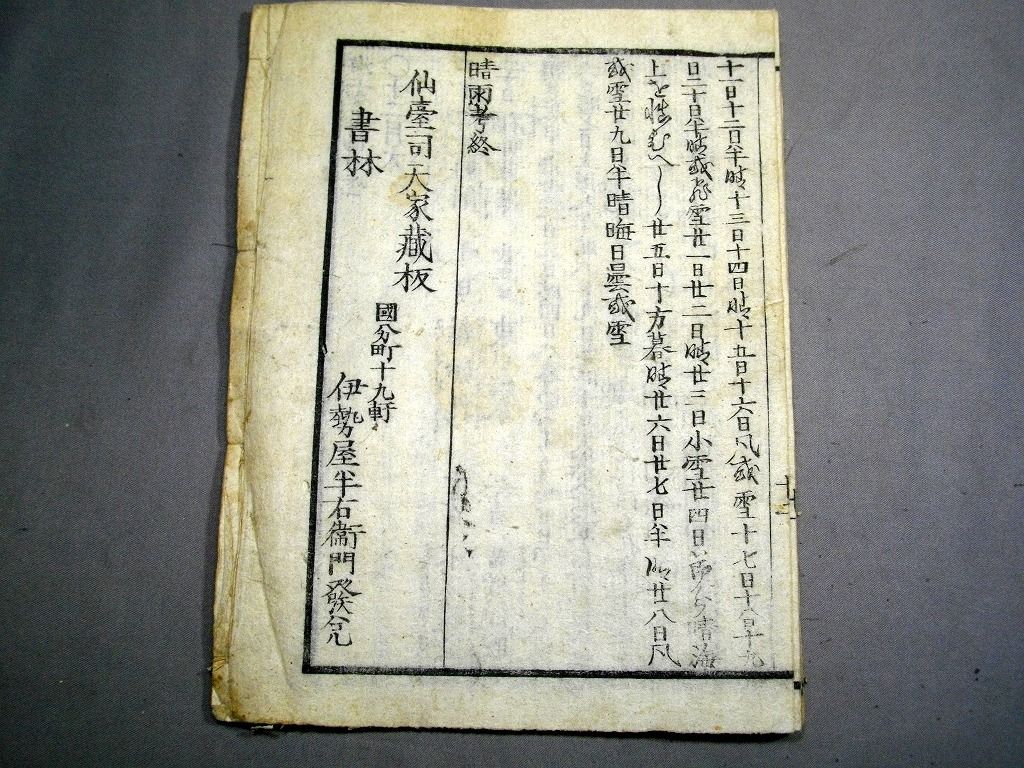 十一日十二日半晴十三日十四日晴十五日十六日風或雪十七日十八日十九
日二十日半晴或飛雪廿一日廿二日晴廿三日小雪廿四日節分晴海
上を慎むへし廿五日十方暮晴廿六日廿七日半晴廿八日風
或雪廿九日半晴晦日曇或雪
晴雨考終
仙臺司天家藏板
書林
國分町十九軒
伊勢屋半右衞門發兌